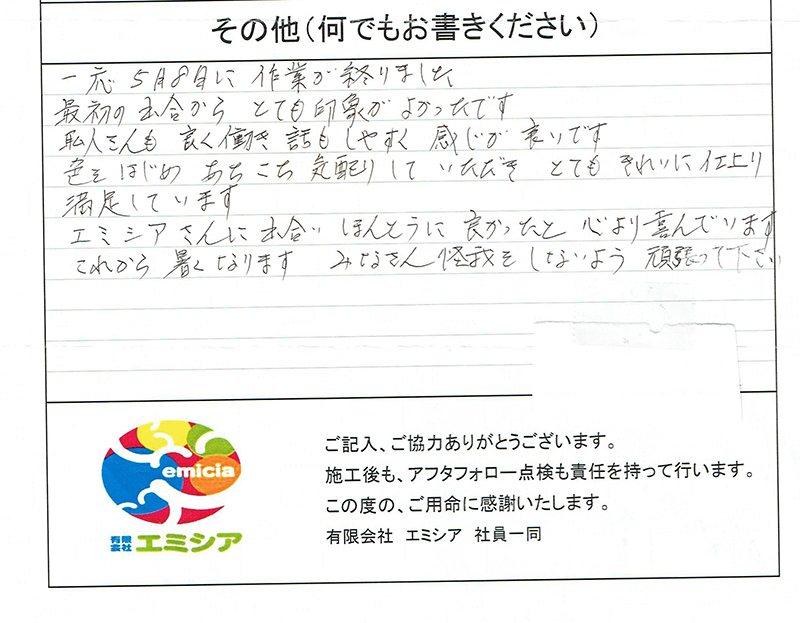 その他(何でもお書きください)
一応 5月8日に 作業が終りました
最初の出合から とても印象が よかったです
職人さんも 良く働き 話もしやすく 感じが良いです
色をはじめ あちこち 気配りして いただき とても きれいに仕上り
満足しています
エミシアさんに出合い ほんとうに良かったと 心より喜んでいます
これから 暑くなります みなさん 怪我をしないよう 頑張って下さい
emicia
有限会社 エミシア
ご記入、ご協力ありがとうございます。
施工後も、アフタフォロー点検も責任を持って行います。
この度の、ご用命に感謝いたします。
有限会社 エミシア 社員一同